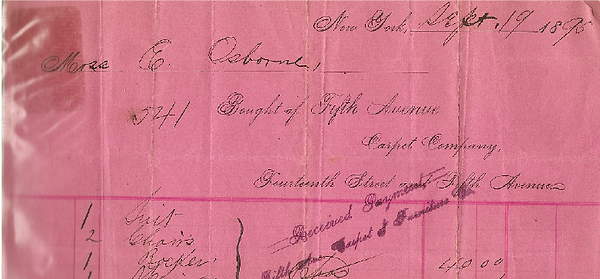 New York, Sept. 19 1895
Moss E. Osborne,
5241 Bought of Fifth Avenue
Carpet Company,
Fourteenth Street and Fifth Avenue
Received Payment
Fifth Ave. Carpet & Furniture Co.
1 Suit
2 Chairs
1 Rocker
40 00
1